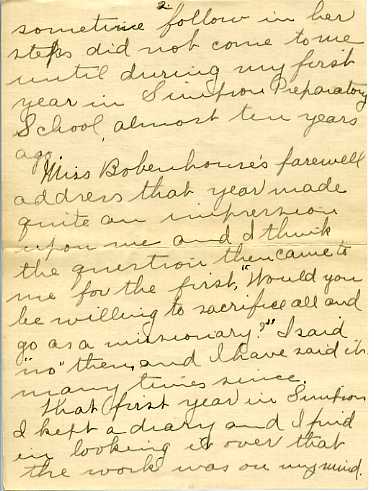 2.
sometime follow in her
steps did not come to me
until during my first
year in Simpson Preparatory
School, almost ten years
ago.
Miss Bobenhouse's farewell
address that year made
quite an impression
upon me and I think
the question then came to
me for the first, "Would you
be willing to sacrifice all and
go as a missionary?" I said
"no" then, and I have said it
many times since.
That first year in Simpson
I kept a diary and I find
in looking it over that
the work was on my mind.